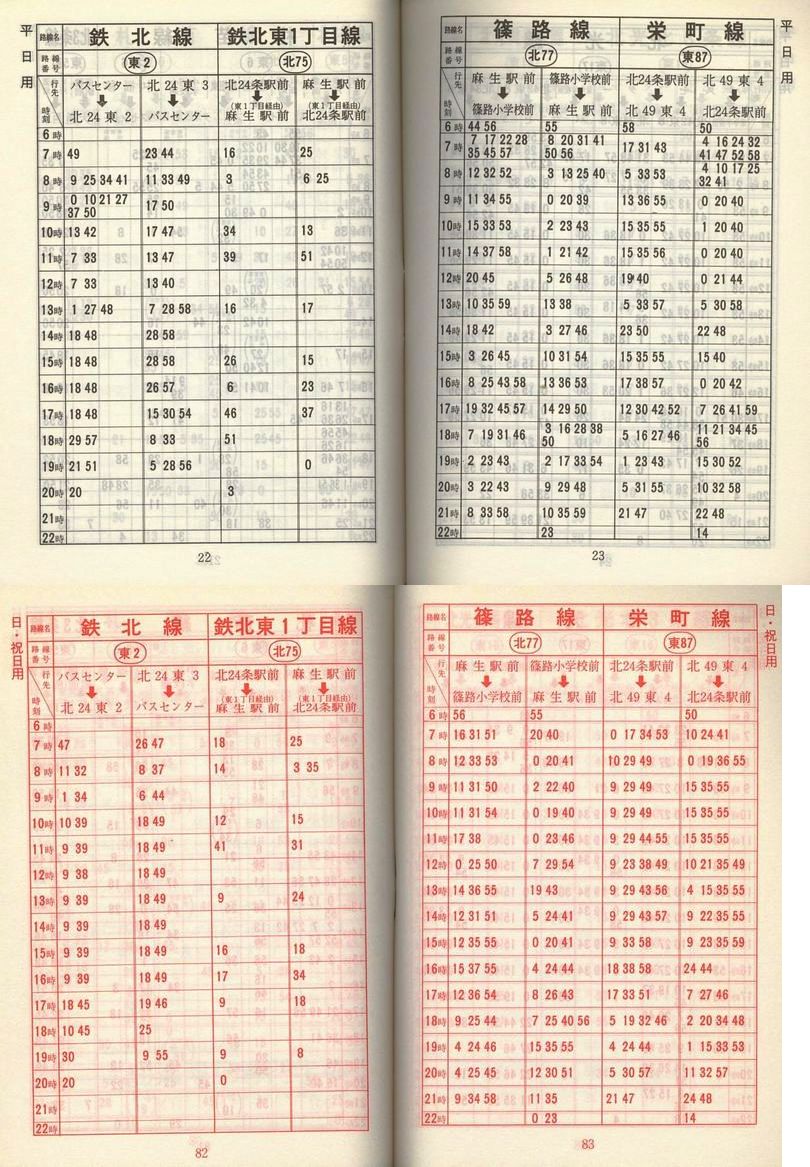 平日用
路線名 鉄北線 鉄北東1丁目線
路線番号 東2 北75
行先 時刻 バスセンター 北24東3 北24条駅前 麻生駅前
(東1丁目経由) (東1丁目経由)
北24東2 バスセンター 麻生駅前 北24条駅前
6時
7時 49 23 44 16 25
8時 9 25 34 41 11 33 49 3 6 25
9時 0 10 21 27 37 50 17 50
10時 13 42 17 47 34 13
11時 7 33 13 47 39 51
12時 7 33 13 40
13時 1 27 48 7 28 58 16 17
14時 18 48 28 58
15時 18 48 28 58 26 15
16時 18 48 26 57 6 23
17時 18 48 15 30 54 46 37
18時 29 57 8 33 51
19時 21 51 5 28 56 0
20時 20 3
21時
22時
22
平日用
路線名 篠路線 栄町線
路線番号 北77 東87
行先 時刻 麻生駅前 篠路小学校前 北24条駅前 北49東4
篠路小学校前 麻生駅前 北49東4 北24条駅前
6時 44 56 55 58 50
7時 7 17 22 28 35 45 57 8 20 31 41 50 56 17 31 43 4 16 24 32 41 47 52 58
8時 12 32 52 3 13 25 40 5 33 53 4 10 17 25 32 41
9時 11 34 55 0 20 39 13 36 55 0 20 40
10時 15 33 53 2 23 43 15 35 55 1 20 40
11時 14 37 58 1 21 42 15 35 56 0 20 40
12時 20 45 5 26 48 19 40 0 21 44
13時 10 35 59 13 38 5 33 57 5 30 58
14時 18 42 3 27 46 23 50 22 48
15時 3 26 45 10 31 54 15 35 55 15 40
16時 8 25 43 58 13 36 53 17 38 57 0 20 42
17時 19 32 45 57 14 29 50 12 30 42 52 7 26 41 59
18時 7 19 31 46 3 16 28 38 50 5 16 27 46 11 21 34 45 56
19時 2 23 43 2 17 33 54 1 23 43 15 30 52
20時 3 22 43 9 29 48 5 31 55 10 32 58
21時 8 33 58 10 35 59 21 47 22 48
22時 23 14
23
日・祝日用
路線名 鉄北線 鉄北東1丁目線
路線番号 東2 北75
行先 時刻 バスセンター 北24東3 北24条駅前 麻生駅前
(東1丁目経由) (東1丁目経由)
北24東2 バスセンター 麻生駅前 北24条駅前
6時
7時 47 26 47 18 25
8時 11 32 8 37 14 3 35
9時 1 34 6 44
10時 10 39 18 49 12 15
11時 9 39 18 49 41 31
12時 9 38 18 49
13時 9 39 18 49 9 24
14時 9 39 18 49
15時 9 39 18 49 16 18
16時 9 39 18 49 17 34
17時 18 45 19 46 9 18
18時 10 45 25
19時 30 9 55 9 8
20時 20 0
21時
22時
82
日・祝日用
路線名 篠路線 栄町線
路線番号 北77 東87
行先 時刻 麻生駅前 篠路小学校前 北24条駅前 北49東4
篠路小学校前 麻生駅前 北49東4 北24条駅前
6時 56 55 50
7時 16 31 51 20 40 0 17 34 53 10 24 41
8時 12 33 53 0 20 41 10 29 49 0 19 36 55
9時 11 31 50 2 22 40 9 29 49 15 35 55
10時 11 31 54 0 19 40 9 29 49 15 35 55
11時 17 38 0 23 46 9 29 44 55 15 35 55
12時 0 25 50 7 29 54 9 23 38 49 10 21 35 49
13時 14 36 55 19 43 9 29 43 56 4 15 35 55
14時 12 31 51 5 24 41 9 29 43 57 9 22 35 55
15時 12 35 55 0 20 41 9 33 58 9 23 35 59
16時 15 37 55 4 24 44 18 38 58 24 44
17時 12 36 54 8 26 43 17 33 51 7 27 46
18時 9 25 44 7 25 40 56 5 19 32 46 2 20 34 48
19時 4 24 46 15 35 55 4 24 44 1 15 33 53
20時 4 25 45 12 30 51 5 30 57 11 32 57
21時 9 34 58 11 35 21 47 24 48
22時 0 23 14
83